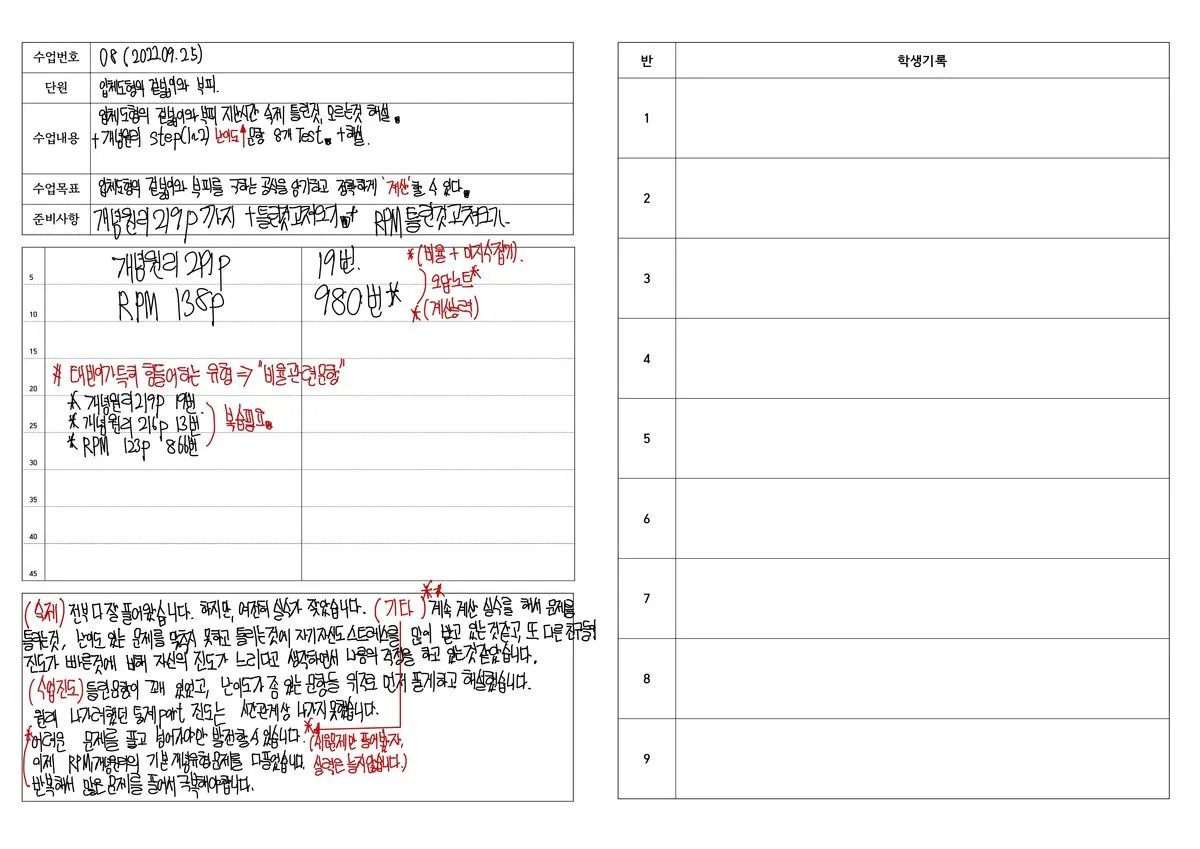 수업번호 08 (2022.09.25)
단원 입체도형의 겉넓이와 부피.
수업내용 입체도형의 겉넓이와 부피 지난시간 숙제 틀린것, 모르는것 해설.
+ 개념원리 step(1~2) 난이도↑ 문항 8개 Test. +해설.
수업목표 입체도형의 겉넓이와 부피를 구하는 공식을 암기하고 정확하게 '계산'할 수 있다.
준비사항 개념원리 219p 까지 + 틀린것고쳐오기 + RPM 틀린것고쳐오기.
개념원리 219p 19번. *(비율 + 미지수잡기).
5
오답노트*
RPM 138p 980번* *(계산능력)
10
15
* 태빈이가 특히 힘들어하는 유형 ⇒ "비율관련문항"
20
* 개념원리 219p 19번
* 개념원리 216p 13번 복습필요.
25
* RPM 123p 866번
30
35
40
45
(숙제) 전부 다 잘 풀어왔습니다. 하지만, 여전히 실수가 잦았습니다. (기타)** 계속 계산 실수를 해서 문제를
틀리는것, 난이도 있는 문제를 맞추지 못하고 틀리는것에 자기자신도 스트레스를 많이 받고 있는것같고, 또 다른 친구들의
진도가 빠른것에 비해 자신의 진도가 느리다고 생각하면서 나름의 걱정을 하고 있는것 같았습니다.
(수업진도) 틀린문항이 꽤 있었고, 난이도가 좀 있는 문항들 위주로 먼저 풀게하고 해설했습니다.
원래 나가려했던 통계 part 진도는 시간관계상 나가지 못했습니다.
* 어려운 문제를 풀고 넘어가야만 발전할 수 있습니다. *(쉬운문제만 풀어봤자,
이제 RPM, 개념원리의 기본개념유형문제를 다풀었습니다. 실력은 늘지않습니다.)
반복해서 많은 문제를 풀어서 극복해야합니다.
반 학생기록
1
2
3
4
5
6
7
8
9